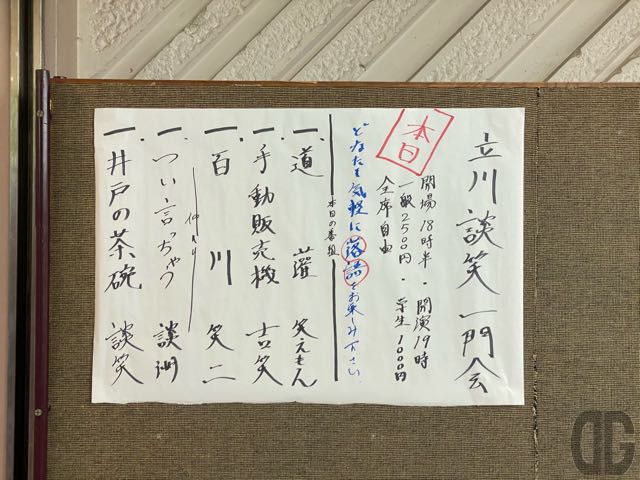 立川談笑一門会
本日
開場18時半・開演19時
一般2500円・学生1000円
全席自由
どなたも気軽に落語をお楽しみ下さい。
本日の番組
一、道灌 笑えもん
一、手動販売機 吉笑
一、百川 笑二
仲入り
一、つい言っちゃう 談洲
一、井戸の茶碗 談笑
DG